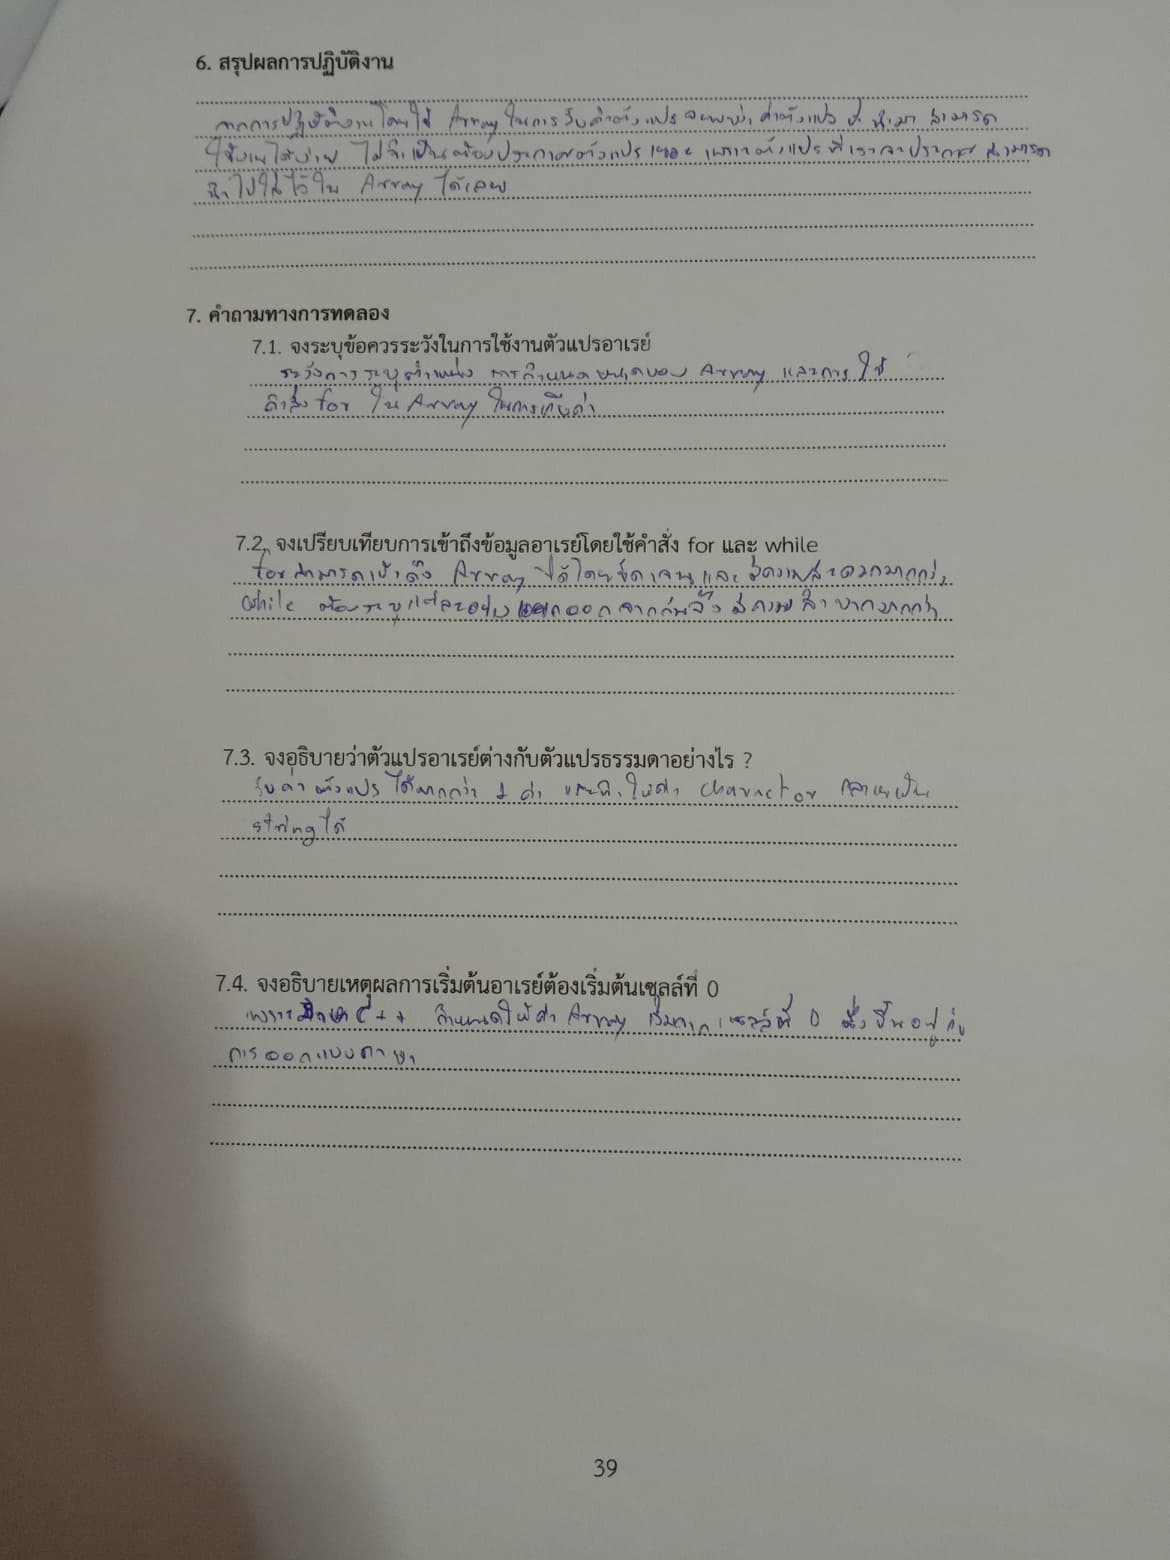 6. สรุปผลการปฏิบัติงาน
จากการปฏิบัติงานโดยใช้ Array ในการรับค่าตัวแปร จะพบว่า ค่าตัวแปร นำมา สามารถ
ใช้งานได้ง่าย ไม่จำเป็นต้องประกาศตัวแปร เยอะ เพราะตัวแปรที่เราจะประกาศ สามารถ
นำไปใส่ไว้ใน Array ได้เลย
7. คำถามทางการทดลอง
7.1. จงระบุข้อควรระวังในการใช้งานตัวแปรอาเรย์
ระวังการระบุตำแหน่ง การกำหนดขนาดของ Array และการใช้
คำสั่ง for ใน Array ในการเก็บค่า
7.2. จงเปรียบเทียบการเข้าถึงข้อมูลอาเรย์โดยใช้คำสั่ง for และ while
for สามารถเข้าถึง Array ได้โดยชัดเจนและมีความสะดวกมากกว่า
while ต้องระบุแต่ละอย่าง ออกจากกันจึงมีความลำบากมากกว่า
7.3. จงอธิบายว่าตัวแปรอาเรย์ต่างกับตัวแปรธรรมดาอย่างไร ?
รับค่าตัวแปรได้มากกว่า 1 ค่า และทำให้ค่า charactor กลายเป็น
string ได้
7.4. จงอธิบายเหตุผลการเริ่มต้นอาเรย์ต้องเริ่มต้นเซลล์ที่ 0
เพราะ C++ กำหนดให้ค่า Array เริ่มจากเซลล์ที่ 0 ซึ่งขึ้นอยู่กับ
การออกแบบภาษา
39